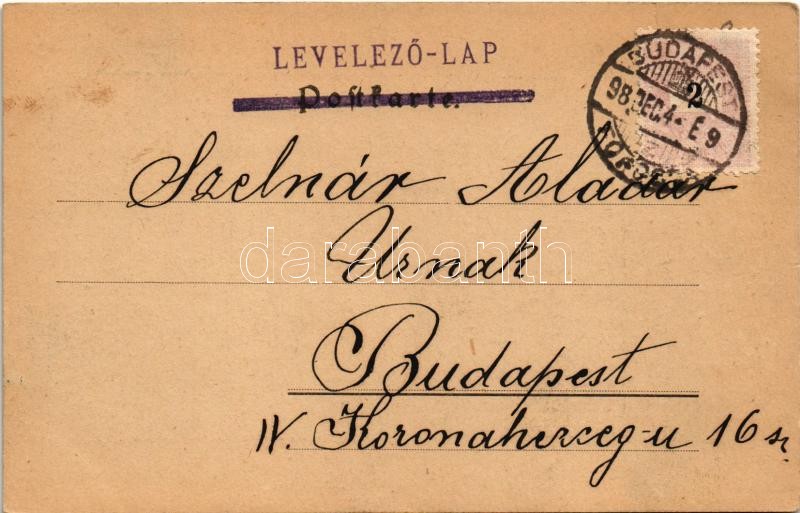 LEVELEZŐ-LAP
Postkarte.
BUDAPEST
2
98. DEC. 4. E 9
Szelnár Aladár
Urnak
darabanth
Budapest
IV. Koronaherzeg-u 16 sz